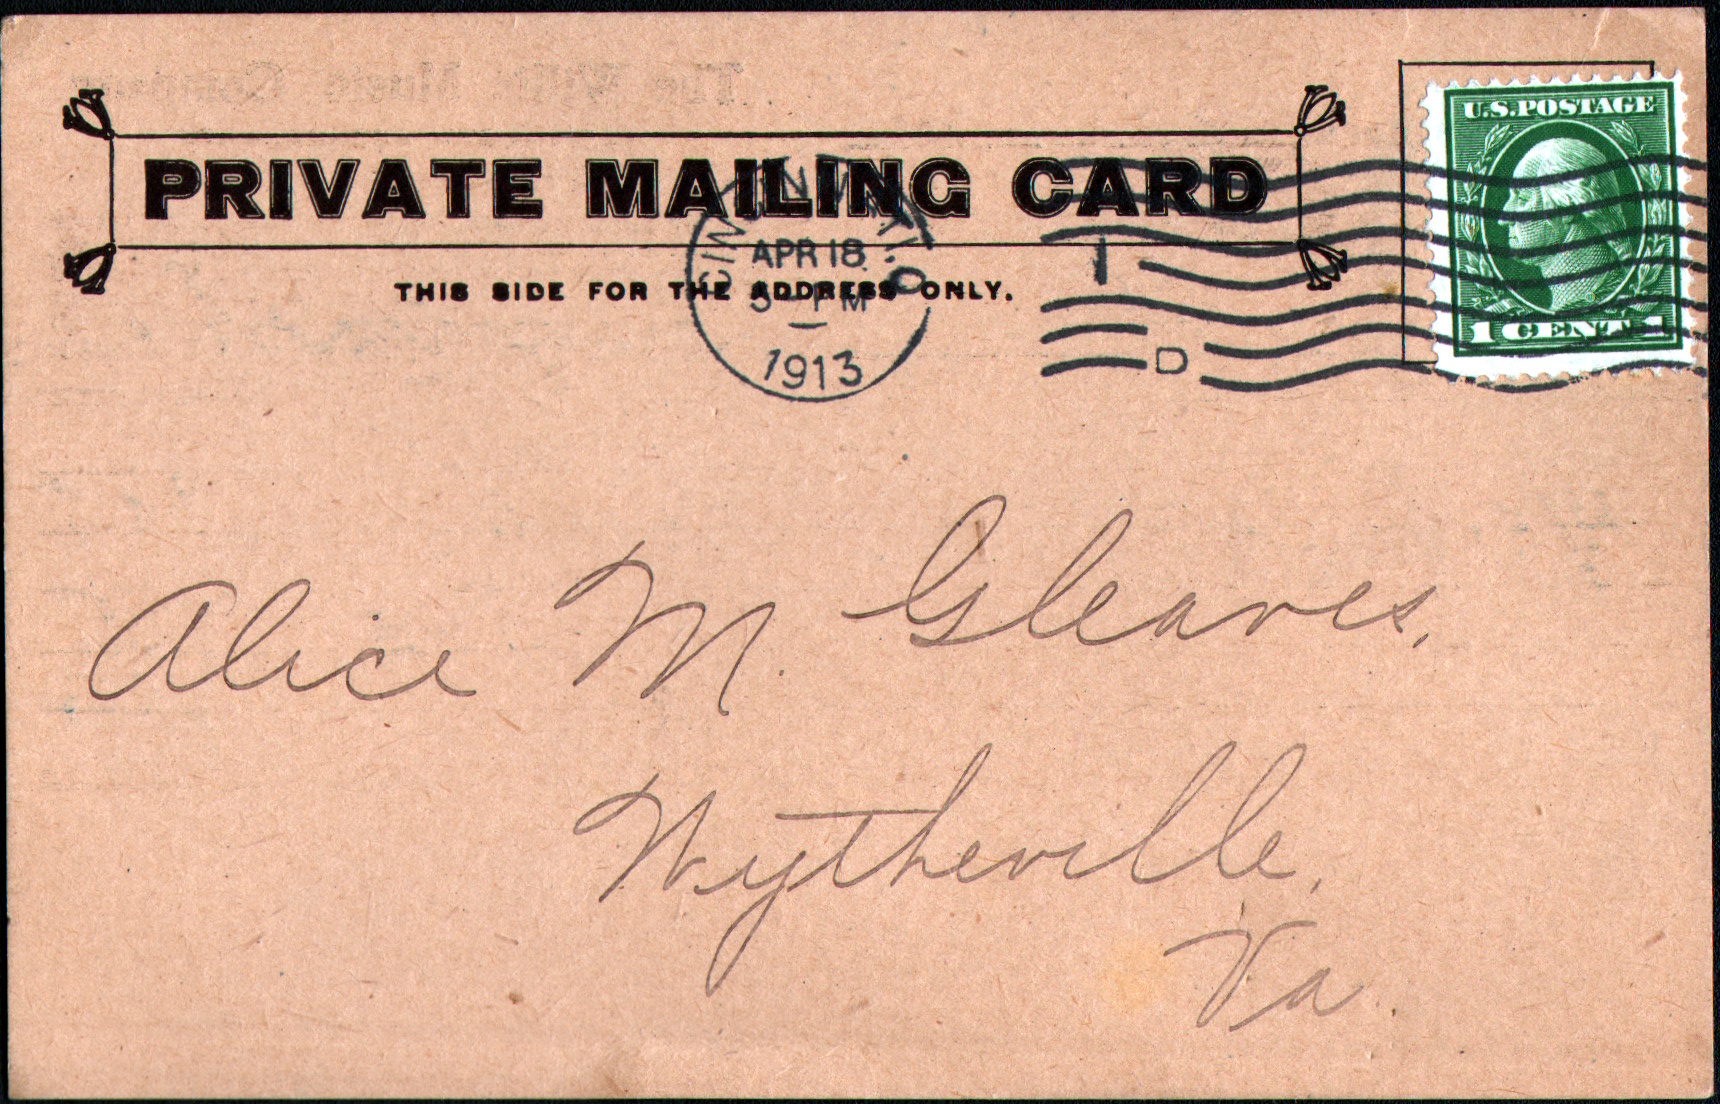 PRIVATE MAILING CARD
THIS SIDE FOR THE ADDRESS ONLY.
CINCINNATI, O
APR 18
PM
1913
1
D
U.S. POSTAGE
1 CENT 1
Alice M. Gleaves,
Wytheville,
Va.